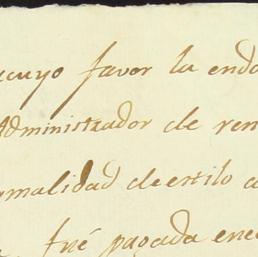 acuyo favor la endo
Administrador de ren
rmalidad de estilo a
fué pagada en